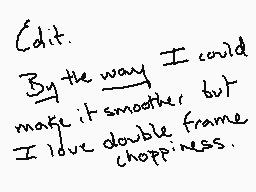 Edit.
By the way I could
make it smoother but
I love double frame
choppiness.